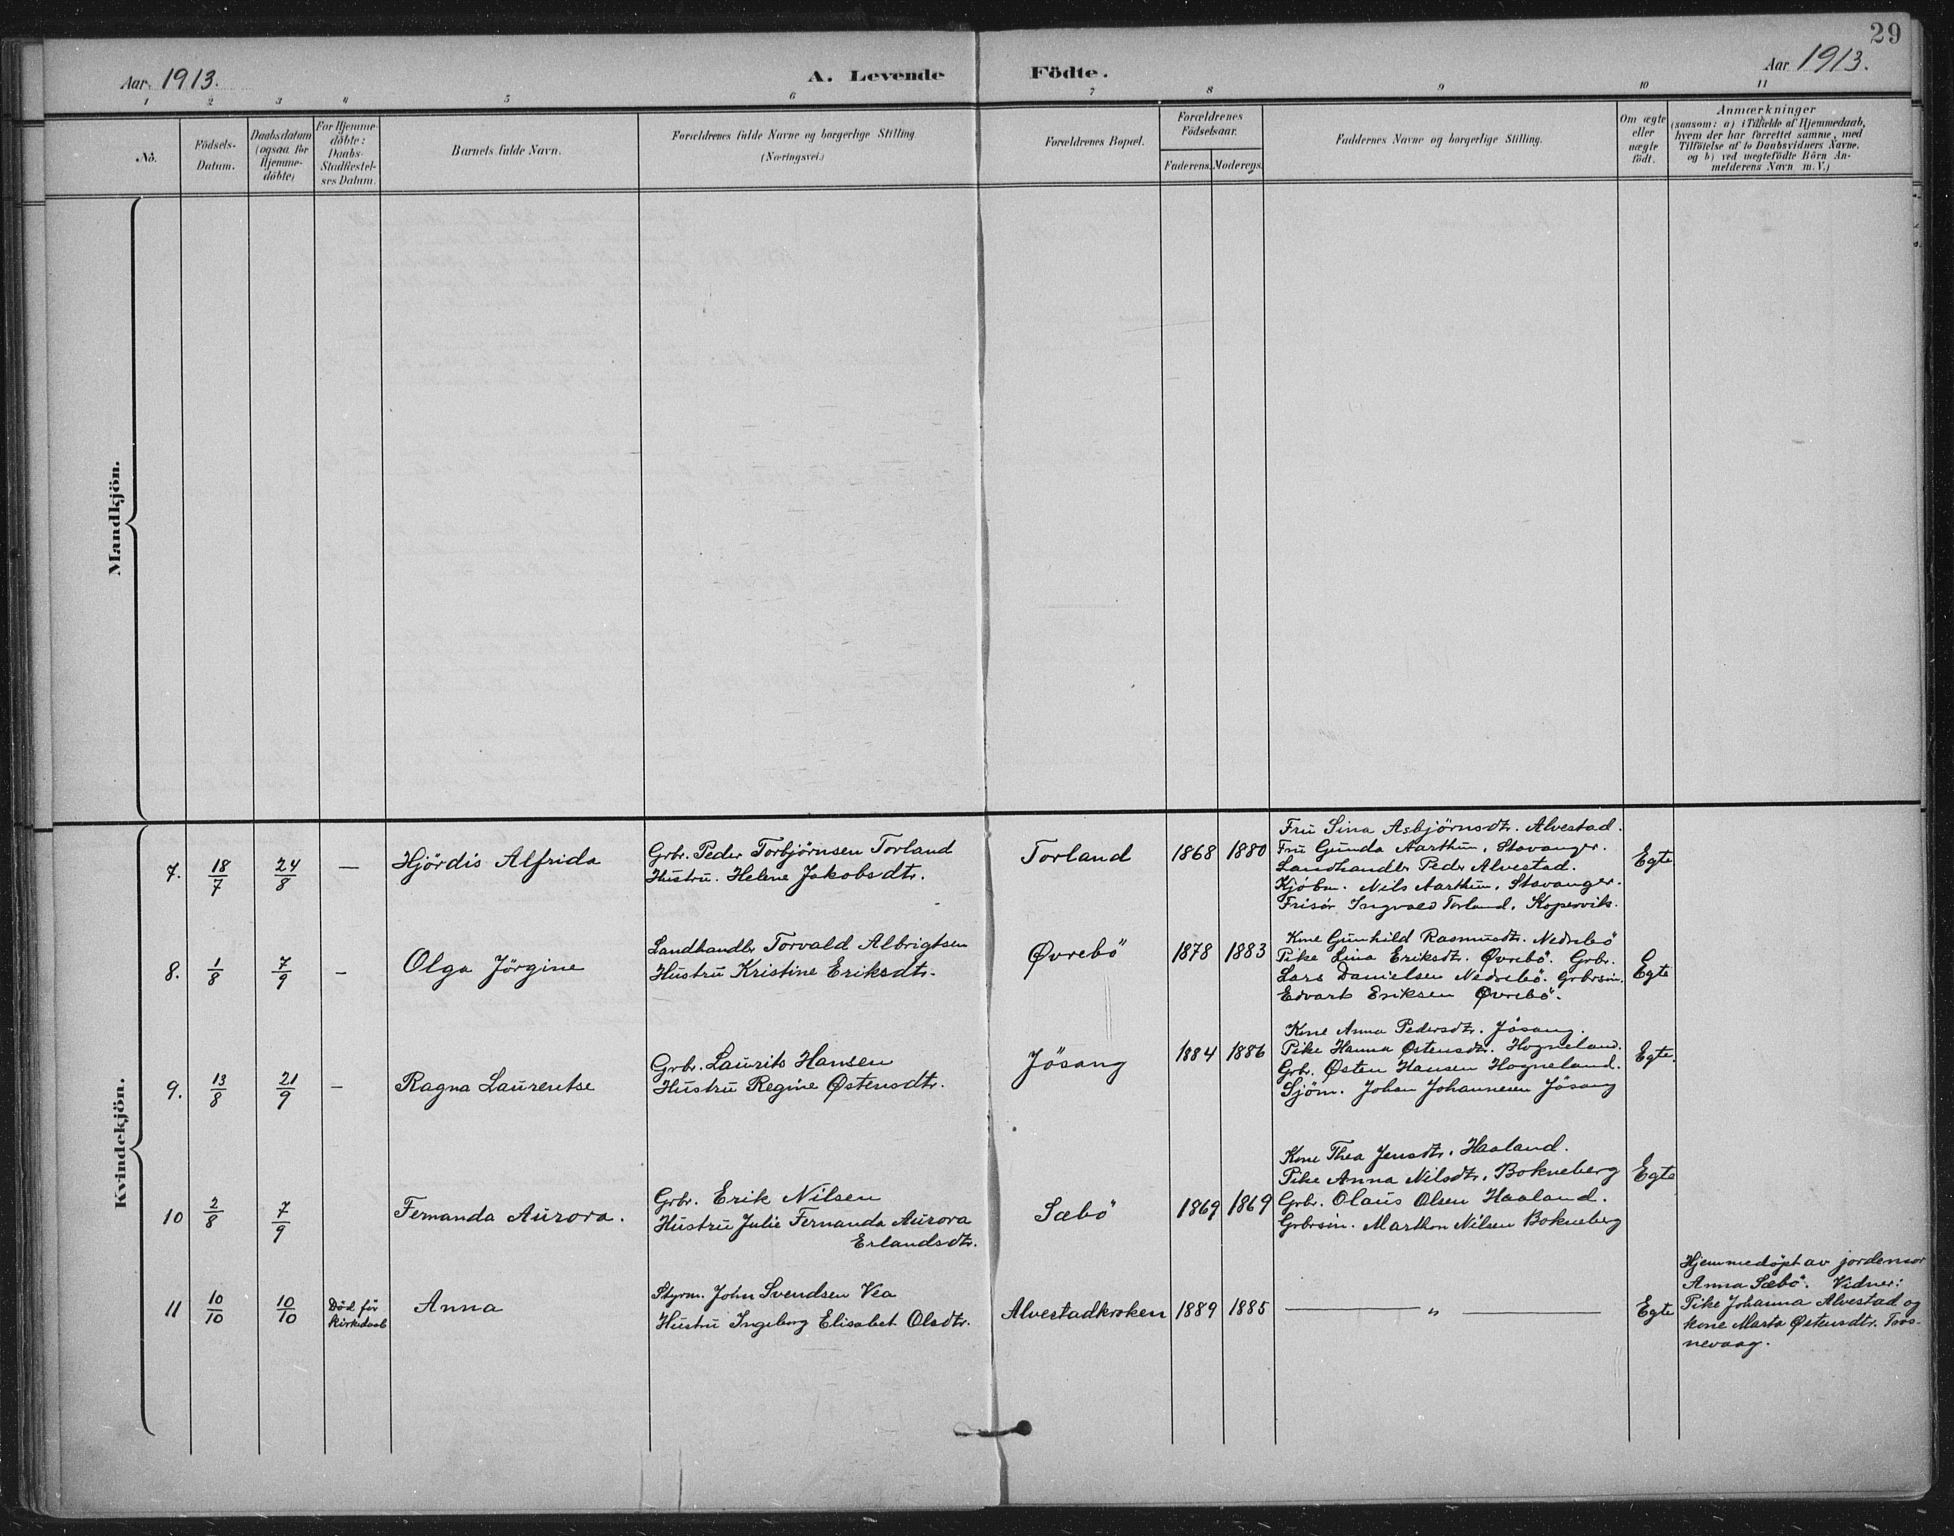 29
Aar 1913.
A. Levende Födte.
Aar 1913.
1 2 3 4 5 6 7 8 9 10 11
No.
Födsels-
Datum.
Daabsdatum
(ogsaa for
Hjemme-
döbte)
For Hjemme-
döbte:
Daabs-
Stadfæstel-
ses Datum.
Barnets fulde Navn.
Forældrenes fulde Navne og borgerlige Stilling
(Næringsvei.)
Forældrenes Bopæl.
Forældrenes
Födselsaar.
Faderens. Moderens.
Faddernes Navne og borgerlige Stilling.
Om ægte
eller
uægte
födt.
Anmærkninger
(saasom: a) i Tilfælde af Hjemmedaab,
hvem der har forrettet samme, med
Tilföielse af to Daabsvidners Navne.
og b) ved uegtefödte Börn An-
melderens Navn m. V.)
Mandkjön.
Kvindekjön.
7. 18/7 24/8 — Hjördis Alfrida
Grbr. Peder Torbjørnsen Torland
Hustru. Helene Jakobsdtr.
Torland 1868 1880
Fru Sina Asbjørnsdtr. Alvestad.
Fru Gunda Aarthun, Stavanger.
Landhandler Peder Alvestad.
Kjöbm. Nils Aarthun, Stavanger.
Frisör Ingvald Torland, Kopervik.
Egte
8. 1/8 7/9 — Olga Jörgine
Landhandler Torvald Albrigtsen
Hustru Kristine Eriksdtr.
Øvrebö 1878 1883
Kone Gunhild Rasmusdtr. Nedrebö
Pike Lina Eriksdtr. Øvrebö. Grbr.
Lars Danielsen Nedrebö. Grbrsön.
Edvart Eriksen Øvrebö.
Egte
9. 13/8 21/9 — Ragna Laurentse
Grbr. Laurits Hansen
Hustru Regine Østensdtr.
Jösang 1884 1886
Kone Anna Pedersdtr. Jösang.
Pike Hanna Østensdtr. Hogneland.
Grbr. Østen Hansen Hogneland.
Sjöm. Johan Johannesen Jösang
Egte.
10 2/8 7/9 Fernanda Aurora.
Grbr. Erik Nilsen
Hustru Julie Fernanda Aurora
Erlandsdtr.
Sæbö 1869 1869
Kone Thea Jensdtr. Haaland.
Pike Anna Nilsdtr. Bokneberg
Grbr. Olaus Olsen Haaland.
Grbrsön. Marthon Nilsen Bokneberg
Egte
11 10/10 10/10 Död för
kirkedaab
Anna
Styrm. John Svendsen Vea
Hustru Ingeborg Elisabet Olsdtr.
Alvestadkroken 1889 1885 — „ —
Egte
Hjemmedöpt av jordemor
Anna Sæbö. Vidner:
Pike Johanna Alvestad og
kone Marta Østensdtr. Tros-
nevaag.